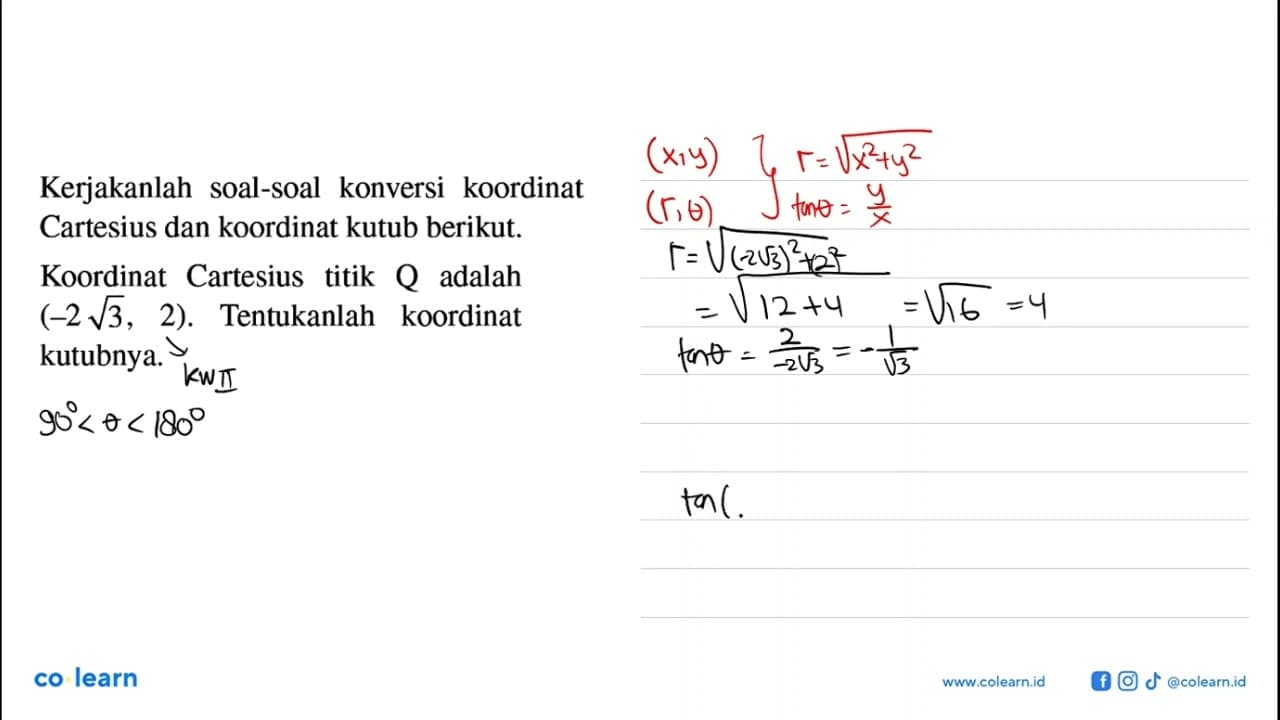 Kerjakanlah soal-soal konversi koordinat
Cartesius dan koordinat kutub berikut.
Koordinat Cartesius titik Q adalah
(–2√3, 2). Tentukanlah koordinat
kutubnya.
kw II
90° < θ < 180°
(x,y) } r = √x²+y²
(r,θ) tanθ = y/x
r = √(-2√3)²+2²
= √12+4 = √16 = 4
tanθ = 2/-2√3 = -1/√3
tan(.
co learn
www.colearn.id @colearn.id